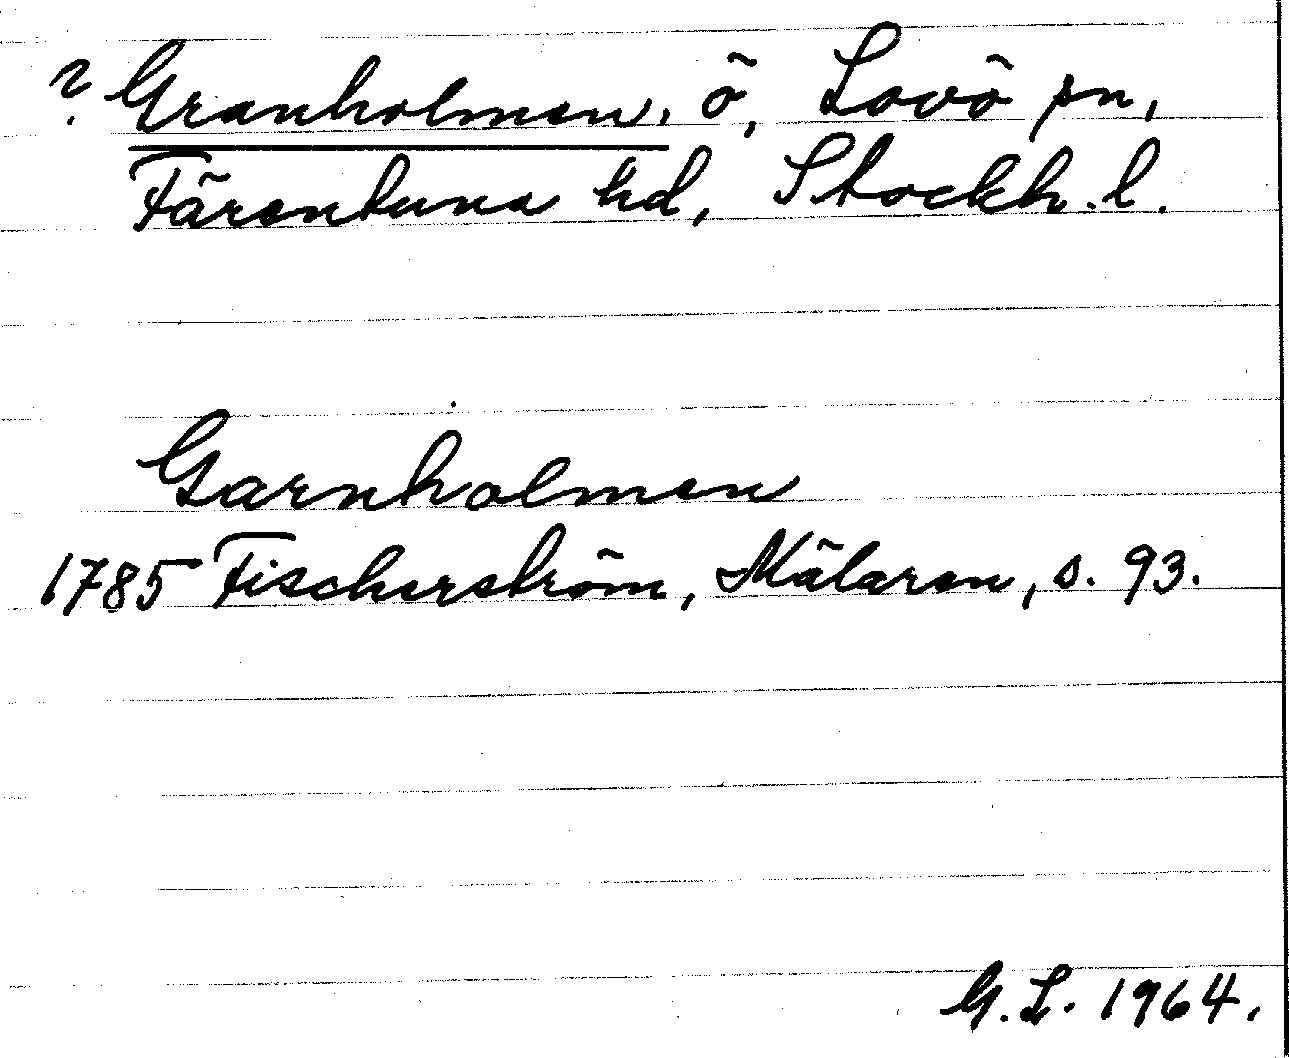 ? Granholmen, ö, Lovö sn,
Färentuna hd, Stockh. l.
Garnholmen
1785 Fischerström, Mälaren, s. 93.
G. L. 1964.